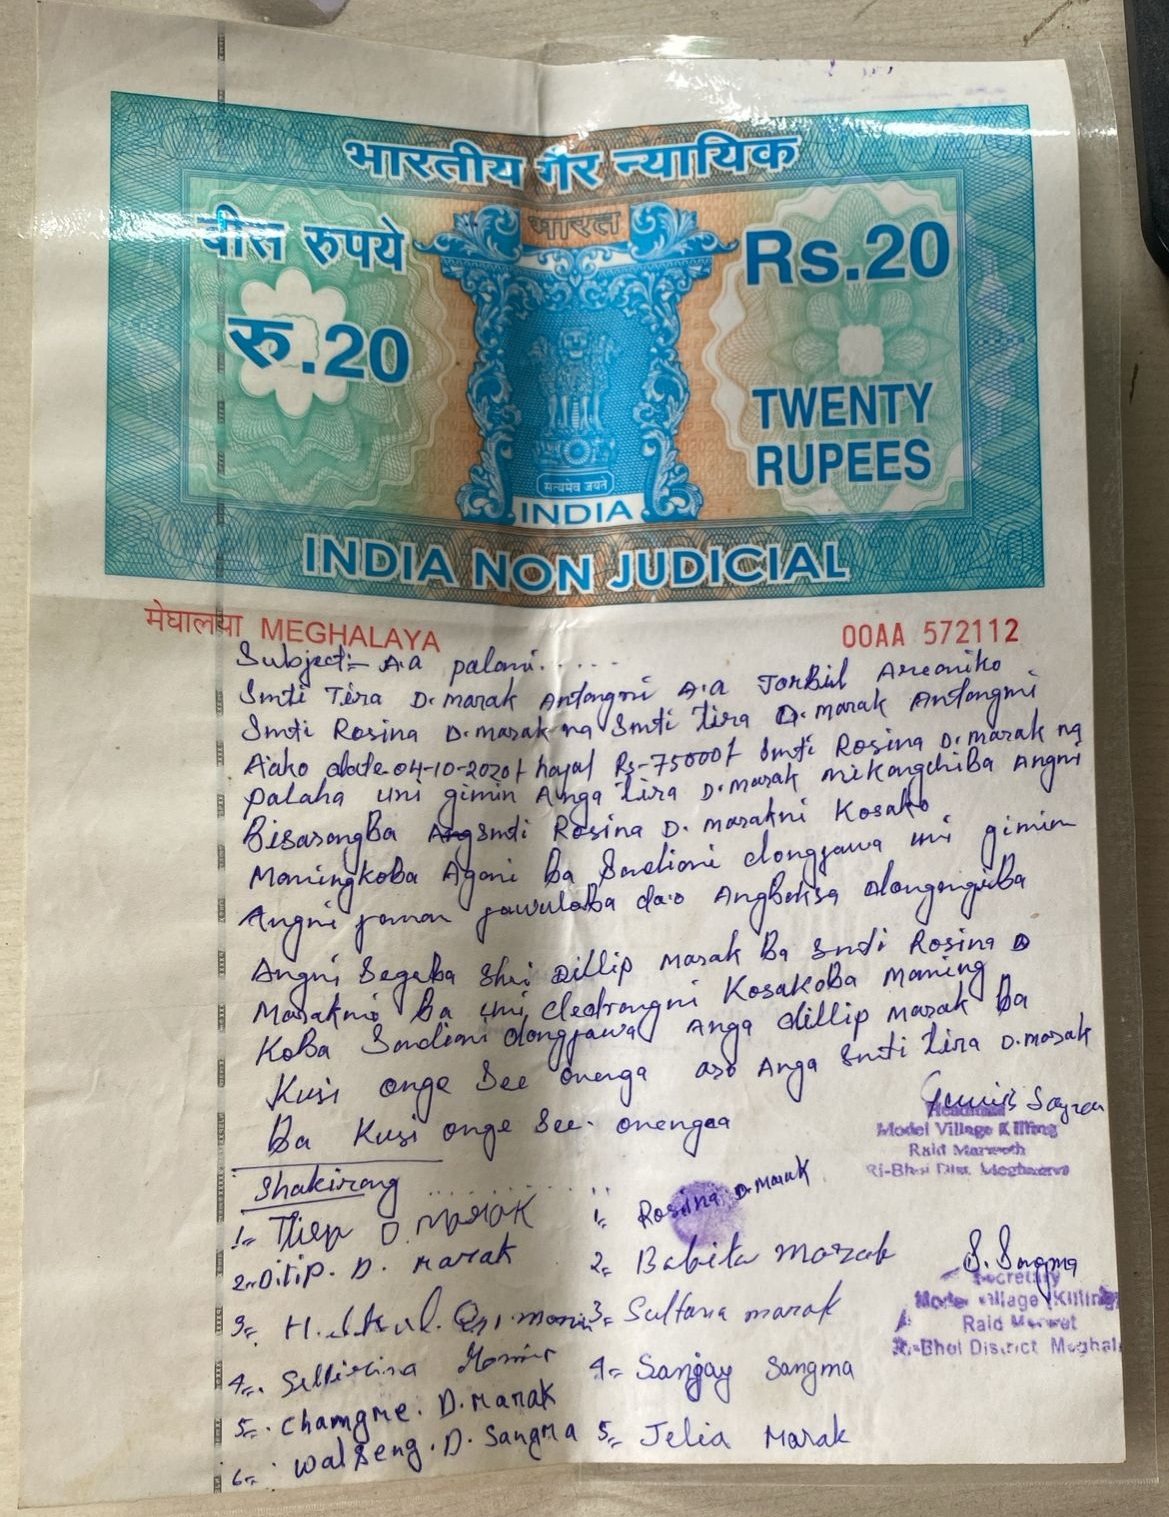 भारतीय गैर न्यायिक
बीस रुपये
भारत
Rs.20
रु.20
TWENTY
RUPEES
सत्यमेव जयते
INDIA
INDIA NON JUDICIAL
मेघालया MEGHALAYA
00AA 572112
Subject:- A.a palani.....
Smti Tira D. marak Antangni A.a Jorbil Areaniko
Smti Rosina D. marak na Smti Tira D. marak Antangni
A'ako date-04-10-2020/ hajal Rs-75000/ Smti Rosina D. marak na
palaha uni gimin Anga Tira D. marak mikangchiba Angni
Bisarangba Smti Rosina D. marakni Kosako
Maningkoba Agani ba dongjawa uni gimin
Angni jaman da.o
Angni Segaba Shri Dillip Marak Ba Smti Rosina D
Marakni Ba uni Kosakoba Maning
Koba dongjawa Anga dillip Marak Ba
Kusi onge See onenga aro Anga Smti Tira D. marak
Ba Kusi onge See. onengaa
Headman
Model Village Killing
Raid Marweth
Ri-Bhoi Dist. Meghalaya
Shakirang
1. D. Marak
1. Rosina D. Marak
2. Dilip. D. Marak
2. Babita Marak
S. Sangma
Secretary
Model Village Killing
Raid Marwet
Ri-Bhoi District Meghal
3.
3. Sultana marak
4.
4. Sanjay Sangma
5. Chamgme. D. Marak
5. Jelia Marak
6. Walseng. D. Sangma